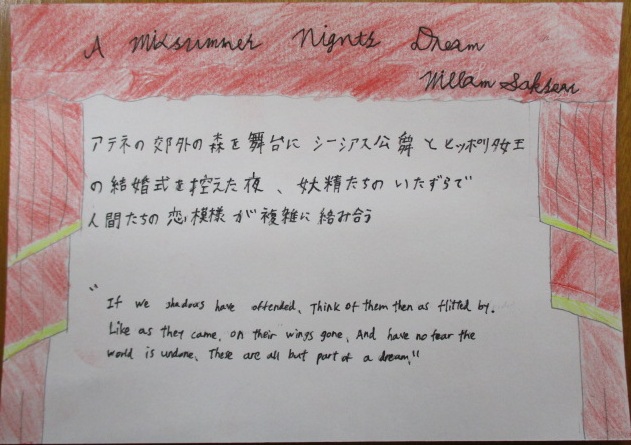 A Midsummer Nights Dream
Willam Saksear
アテネの郊外の森を舞台に シーシアス公舞とヒッポリ女王
の結婚式を控えた夜、妖精たちのいたずらで
人間たちの恋模様が複雑に絡み合う
"If we shadows have offended, Think of them then as flitted by.
Like as they came, on their wings gone, And have no fear the
world is undone, These are all but part of a dream."